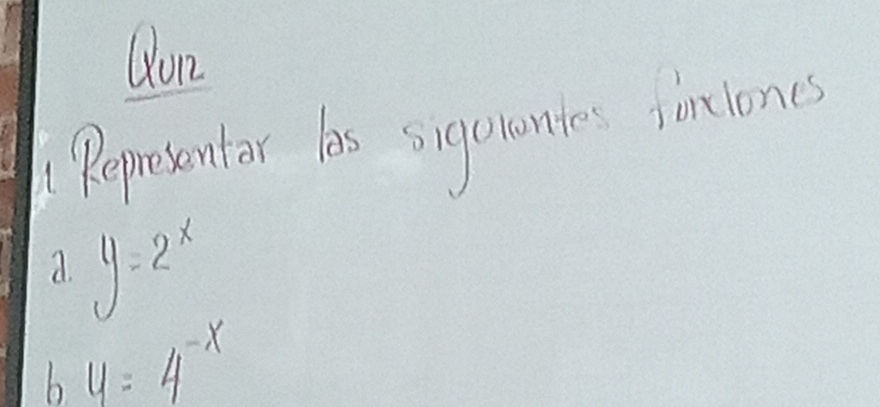 Quiz
1 Representar las siguientes funciones
a. y = 2^x
b. y = 4^-x